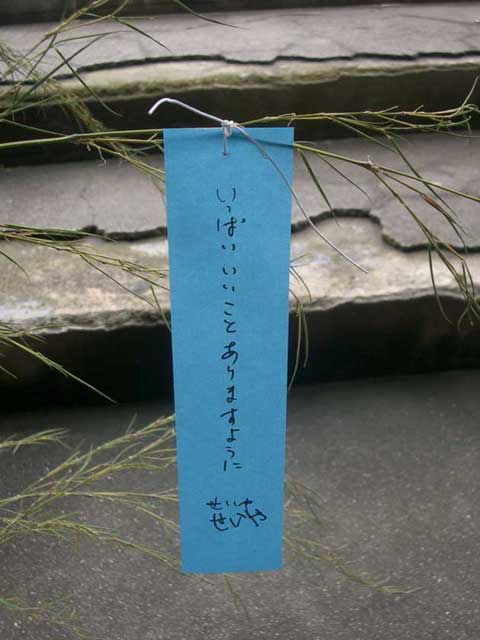 いっぱいいいことありますように
せいや